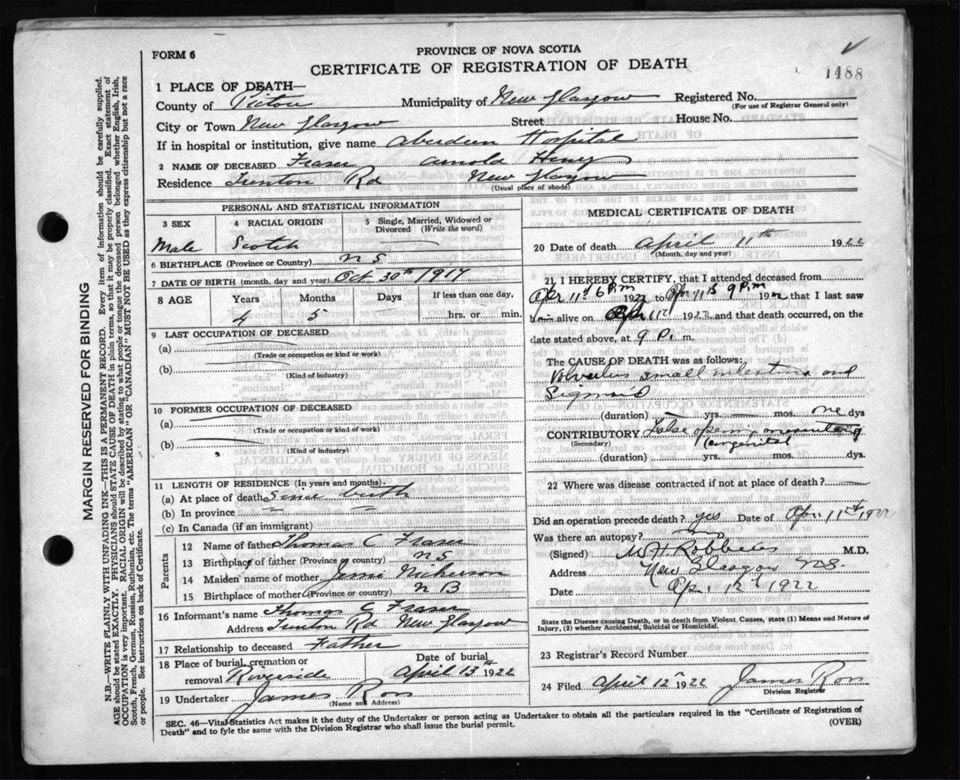 FORM 6
PROVINCE OF NOVA SCOTIA
CERTIFICATE OF REGISTRATION OF DEATH
1488
1 PLACE OF DEATH—
County of Pictou Municipality of New Glasgow Registered No.
(For use of Registrar General only)
City or Town New Glasgow Street House No.
If in hospital or institution, give name Aberdeen Hospital
2 NAME OF DECEASED Fraser Arnold Henry
Residence Trenton Rd New Glasgow
(Usual place of abode)
PERSONAL AND STATISTICAL INFORMATION
3 SEX 4 RACIAL ORIGIN 5 Single, Married, Widowed or Divorced (Write the word)
Male Scotch
6 BIRTHPLACE (Province or Country) N S
7 DATE OF BIRTH (month, day and year) Oct 30th 1917
8 AGE Years Months Days If less than one day,
4 5 hrs. or min.
9 LAST OCCUPATION OF DECEASED
(a)
(Trade or occupation or kind or work)
(b)
(Kind of industry)
10 FORMER OCCUPATION OF DECEASED
(a)
(Trade or occupation or kind or work)
(b)
(Kind of industry)
11 LENGTH OF RESIDENCE (In years and months).
(a) At place of death Since birth
(b) In province " "
(c) In Canada (if an immigrant)
Parents
12 Name of father Thomas C Fraser
13 Birthplace of father (Province or country) N S
14 Maiden name of mother Nickerson
15 Birthplace of mother (Province or country) N B
16 Informant's name Thomas C Fraser
Address Trenton Rd New Glasgow
17 Relationship to deceased Father
18 Place of burial, cremation or removal Riverside Date of burial April 13th 1922
19 Undertaker James Ross
(Name and Address)
MEDICAL CERTIFICATE OF DEATH
20 Date of death April 11th 1922
(Month, day and year)
21 I HEREBY CERTIFY, that I attended deceased from
Apr 11th 6 P.m 1922 to Apr 11th 9 P.m 1922 that I last saw
him alive on Apr 11th 1922 and that death occurred, on the
date stated above, at 9 P. m.
The CAUSE OF DEATH was as follows:
Volvulus small intestine and
Sigmoid
(duration) yrs. mos. one dys
CONTRIBUTORY False opening mesentery
(Secondary) (Congenital)
(duration) yrs. mos. dys.
22 Where was disease contracted if not at place of death?
Did an operation precede death? yes Date of Apr 11th 1922
Was there an autopsy?
(Signed) M.D.
Address New Glasgow N.S.
Date Apr. 12th 1922
State the Disease causing Death, or in death from Violent Causes, state (1) Means and Nature of
Injury, (2) whether Accidental, Suicidal or Homicidal.
23 Registrar's Record Number
24 Filed April 12th 1922 James Ross
Division Registrar
SEC. 46—Vital Statistics Act makes it the duty of the Undertaker or person acting as Undertaker to obtain all the particulars required in the "Certificate of Registration of
Death" and to fyle the same with the Division Registrar who shall issue the burial permit. (OVER)
MARGIN RESERVED FOR BINDING
N.B.—WRITE PLAINLY WITH UNFADING INK—THIS IS A PERMANENT RECORD. Every item of information should be carefully supplied.
AGE should be stated EXACTLY. PHYSICIANS should STATE CAUSE OF DEATH in plain terms, so that it may be properly classified. Exact statement of
OCCUPATION is very important. RACIAL ORIGIN will be described by stating to what people or tongue the deceased person belonged whether English, Irish,
Scotch, French, German, Russian, Ruthenian, etc. The terms "AMERICAN" OR "CANADIAN" MUST NOT BE USED as they express citizenship but not a race
or people. See instructions on back of Certificate.